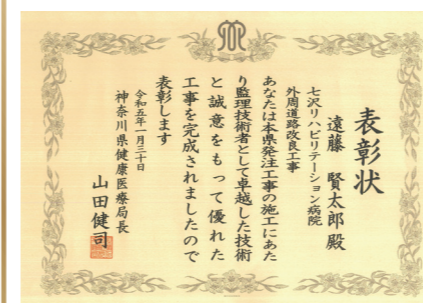 表彰状
遠藤 賢太郎殿
七沢リハビリテーション病院
外周道路改良工事
あなたは本県発注工事の施工にあた
り監理技術者として卓越した技術
と誠意をもって優れた
工事を完成されましたので
表彰します
令和五年一月三十日
神奈川県健康医療局長
山田健司